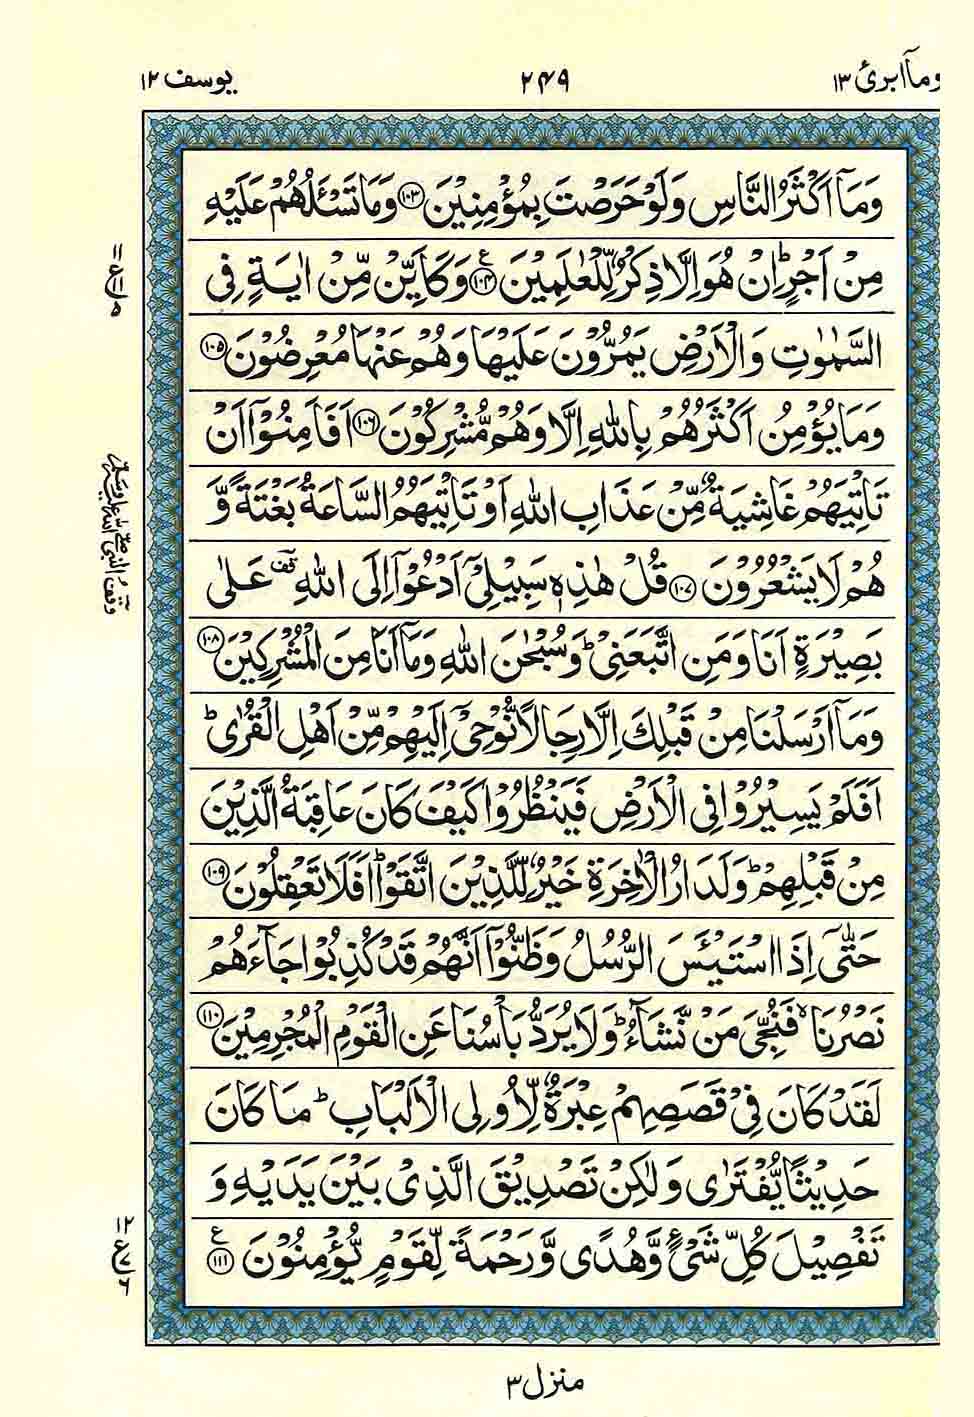 وماۤابرئ ١٣
٢٤٩
یوسف ١٢
وَمَاۤ اَكْثَرُ النَّاسِ وَلَوْ حَرَصْتَ بِمُؤْمِنِیْنَ ﴿١٠٣﴾ وَمَا تَسْـَٔلُهُمْ عَلَیْهِ
مِنْ اَجْرٍ ؕ اِنْ هُوَ اِلَّا ذِكْرٌ لِّلْعٰلَمِیْنَ ﴿١٠٤﴾ ع وَكَاَیِّنْ مِّنْ اٰیَةٍ فِی
السَّمٰوٰتِ وَالْاَرْضِ یَمُرُّوْنَ عَلَیْهَا وَهُمْ عَنْهَا مُعْرِضُوْنَ ﴿١٠٥﴾
وَمَا یُؤْمِنُ اَكْثَرُهُمْ بِاللّٰهِ اِلَّا وَهُمْ مُّشْرِكُوْنَ ﴿١٠٦﴾ اَفَاَمِنُوْۤا اَنْ
تَاْتِیَهُمْ غَاشِیَةٌ مِّنْ عَذَابِ اللّٰهِ اَوْ تَاْتِیَهُمُ السَّاعَةُ بَغْتَةً وَّ
هُمْ لَا یَشْعُرُوْنَ ﴿١٠٧﴾ قُلْ هٰذِهٖ سَبِیْلِیْۤ اَدْعُوْۤا اِلَی اللّٰهِ ۫قف عَلٰی
بَصِیْرَةٍ اَنَا وَمَنِ اتَّبَعَنِیْ ؕ وَسُبْحٰنَ اللّٰهِ وَمَاۤ اَنَا مِنَ الْمُشْرِكِیْنَ ﴿١٠٨﴾
وَمَاۤ اَرْسَلْنَا مِنْ قَبْلِكَ اِلَّا رِجَالًا نُّوْحِیْۤ اِلَیْهِمْ مِّنْ اَهْلِ الْقُرٰی ؕ
اَفَلَمْ یَسِیْرُوْا فِی الْاَرْضِ فَیَنْظُرُوْا كَیْفَ كَانَ عَاقِبَةُ الَّذِیْنَ
مِنْ قَبْلِهِمْ ؕ وَلَدَارُ الْاٰخِرَةِ خَیْرٌ لِّلَّذِیْنَ اتَّقَوْا ؕ اَفَلَا تَعْقِلُوْنَ ﴿١٠٩﴾
حَتّٰۤی اِذَا اسْتَیْـَٔسَ الرُّسُلُ وَظَنُّوْۤا اَنَّهُمْ قَدْ كُذِبُوْا جَآءَهُمْ
نَصْرُنَا ۙ فَنُجِّیَ مَنْ نَّشَآءُ ؕ وَلَا یُرَدُّ بَاْسُنَا عَنِ الْقَوْمِ الْمُجْرِمِیْنَ ﴿١١٠﴾
لَقَدْ كَانَ فِیْ قَصَصِهِمْ عِبْرَةٌ لِّاُولِی الْاَلْبَابِ ؕ مَا كَانَ
حَدِیْثًا یُّفْتَرٰی وَلٰكِنْ تَصْدِیْقَ الَّذِیْ بَیْنَ یَدَیْهِ وَ
تَفْصِیْلَ كُلِّ شَیْءٍ وَّهُدًی وَّرَحْمَةً لِّقَوْمٍ یُّؤْمِنُوْنَ ﴿١١١﴾ ع
١١
ع ١١
٥
وقف النبی صلی اللہ علیہ وسلم
١٢
ع ٧
٦
منزل ٣